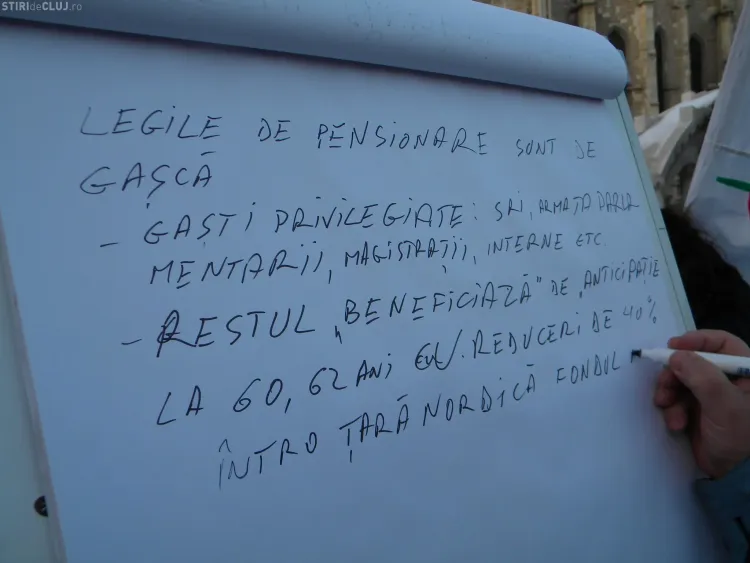 STIRIdeCLUJ.ro
LEGILE DE PENSIONARE SUNT DE
GAȘCĂ
- GAȘTI PRIVILEGIATE: SRI, ARMATA PARLA
MENTARII, MAGISTRAȚII, INTERNE ETC.
- RESTUL „BENEFICIAZĂ" DE „ANTICIPAȚIE
LA 60, 62 ANI CU REDUCERI DE 40%
ÎNTRO ȚARĂ NORDICĂ FONDUL